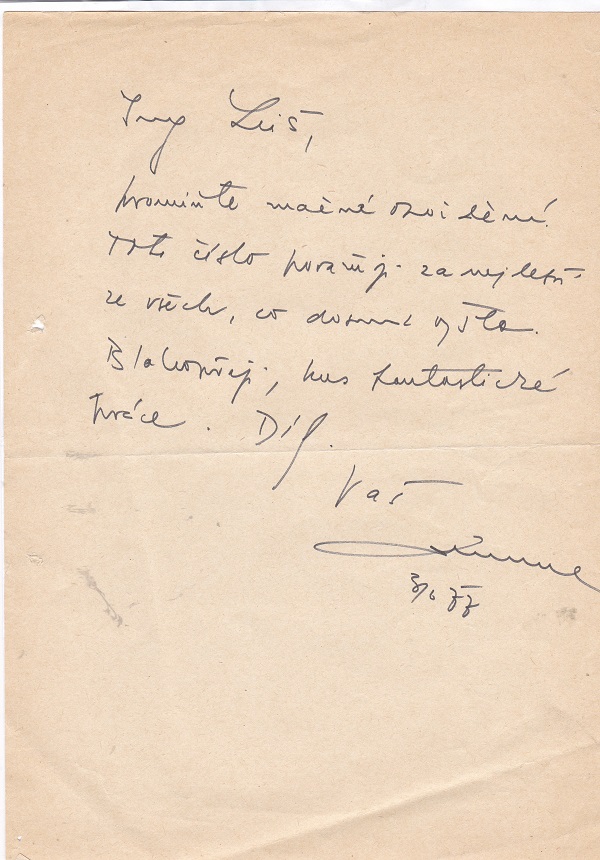 Ing Leiš,
promiňte mačné
Toto číslo považuji za nejlepší
ze všech, co dosud vyšla.
Blahopřeji, kus fantastické
práce. Dík.
Váš
3/6 77